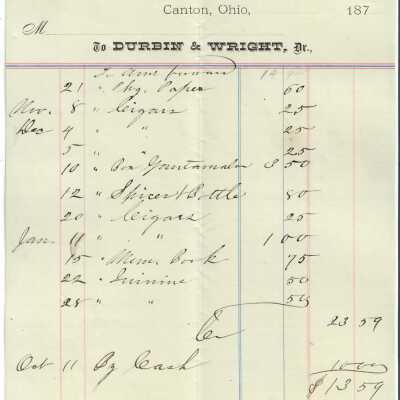 Canton, Ohio, 187
M
To DURBIN & WRIGHT, Dr.,
To Amt forward 14
21 " Phg. Paper 60
Nov. 8 " Cigars 25
Dec 4 " " 25
5 " " 25
10 " Box 8 50
12 " Spices & Bottle 80
20 " Cigars 25
Jan. 11 " " 1 00
15 " Mem. Book 75
22 " Quinine 50
28 " " 50
Cr 23 59
Oct 11 By Cash 10 00
$ 13 59